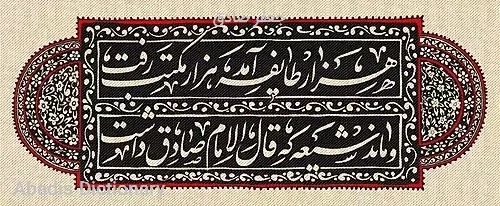 هزار طایفه آمد، هزار مکتب رفت
و ماند شیعه که قال الامام صادق داشت
Abadis Dictionary